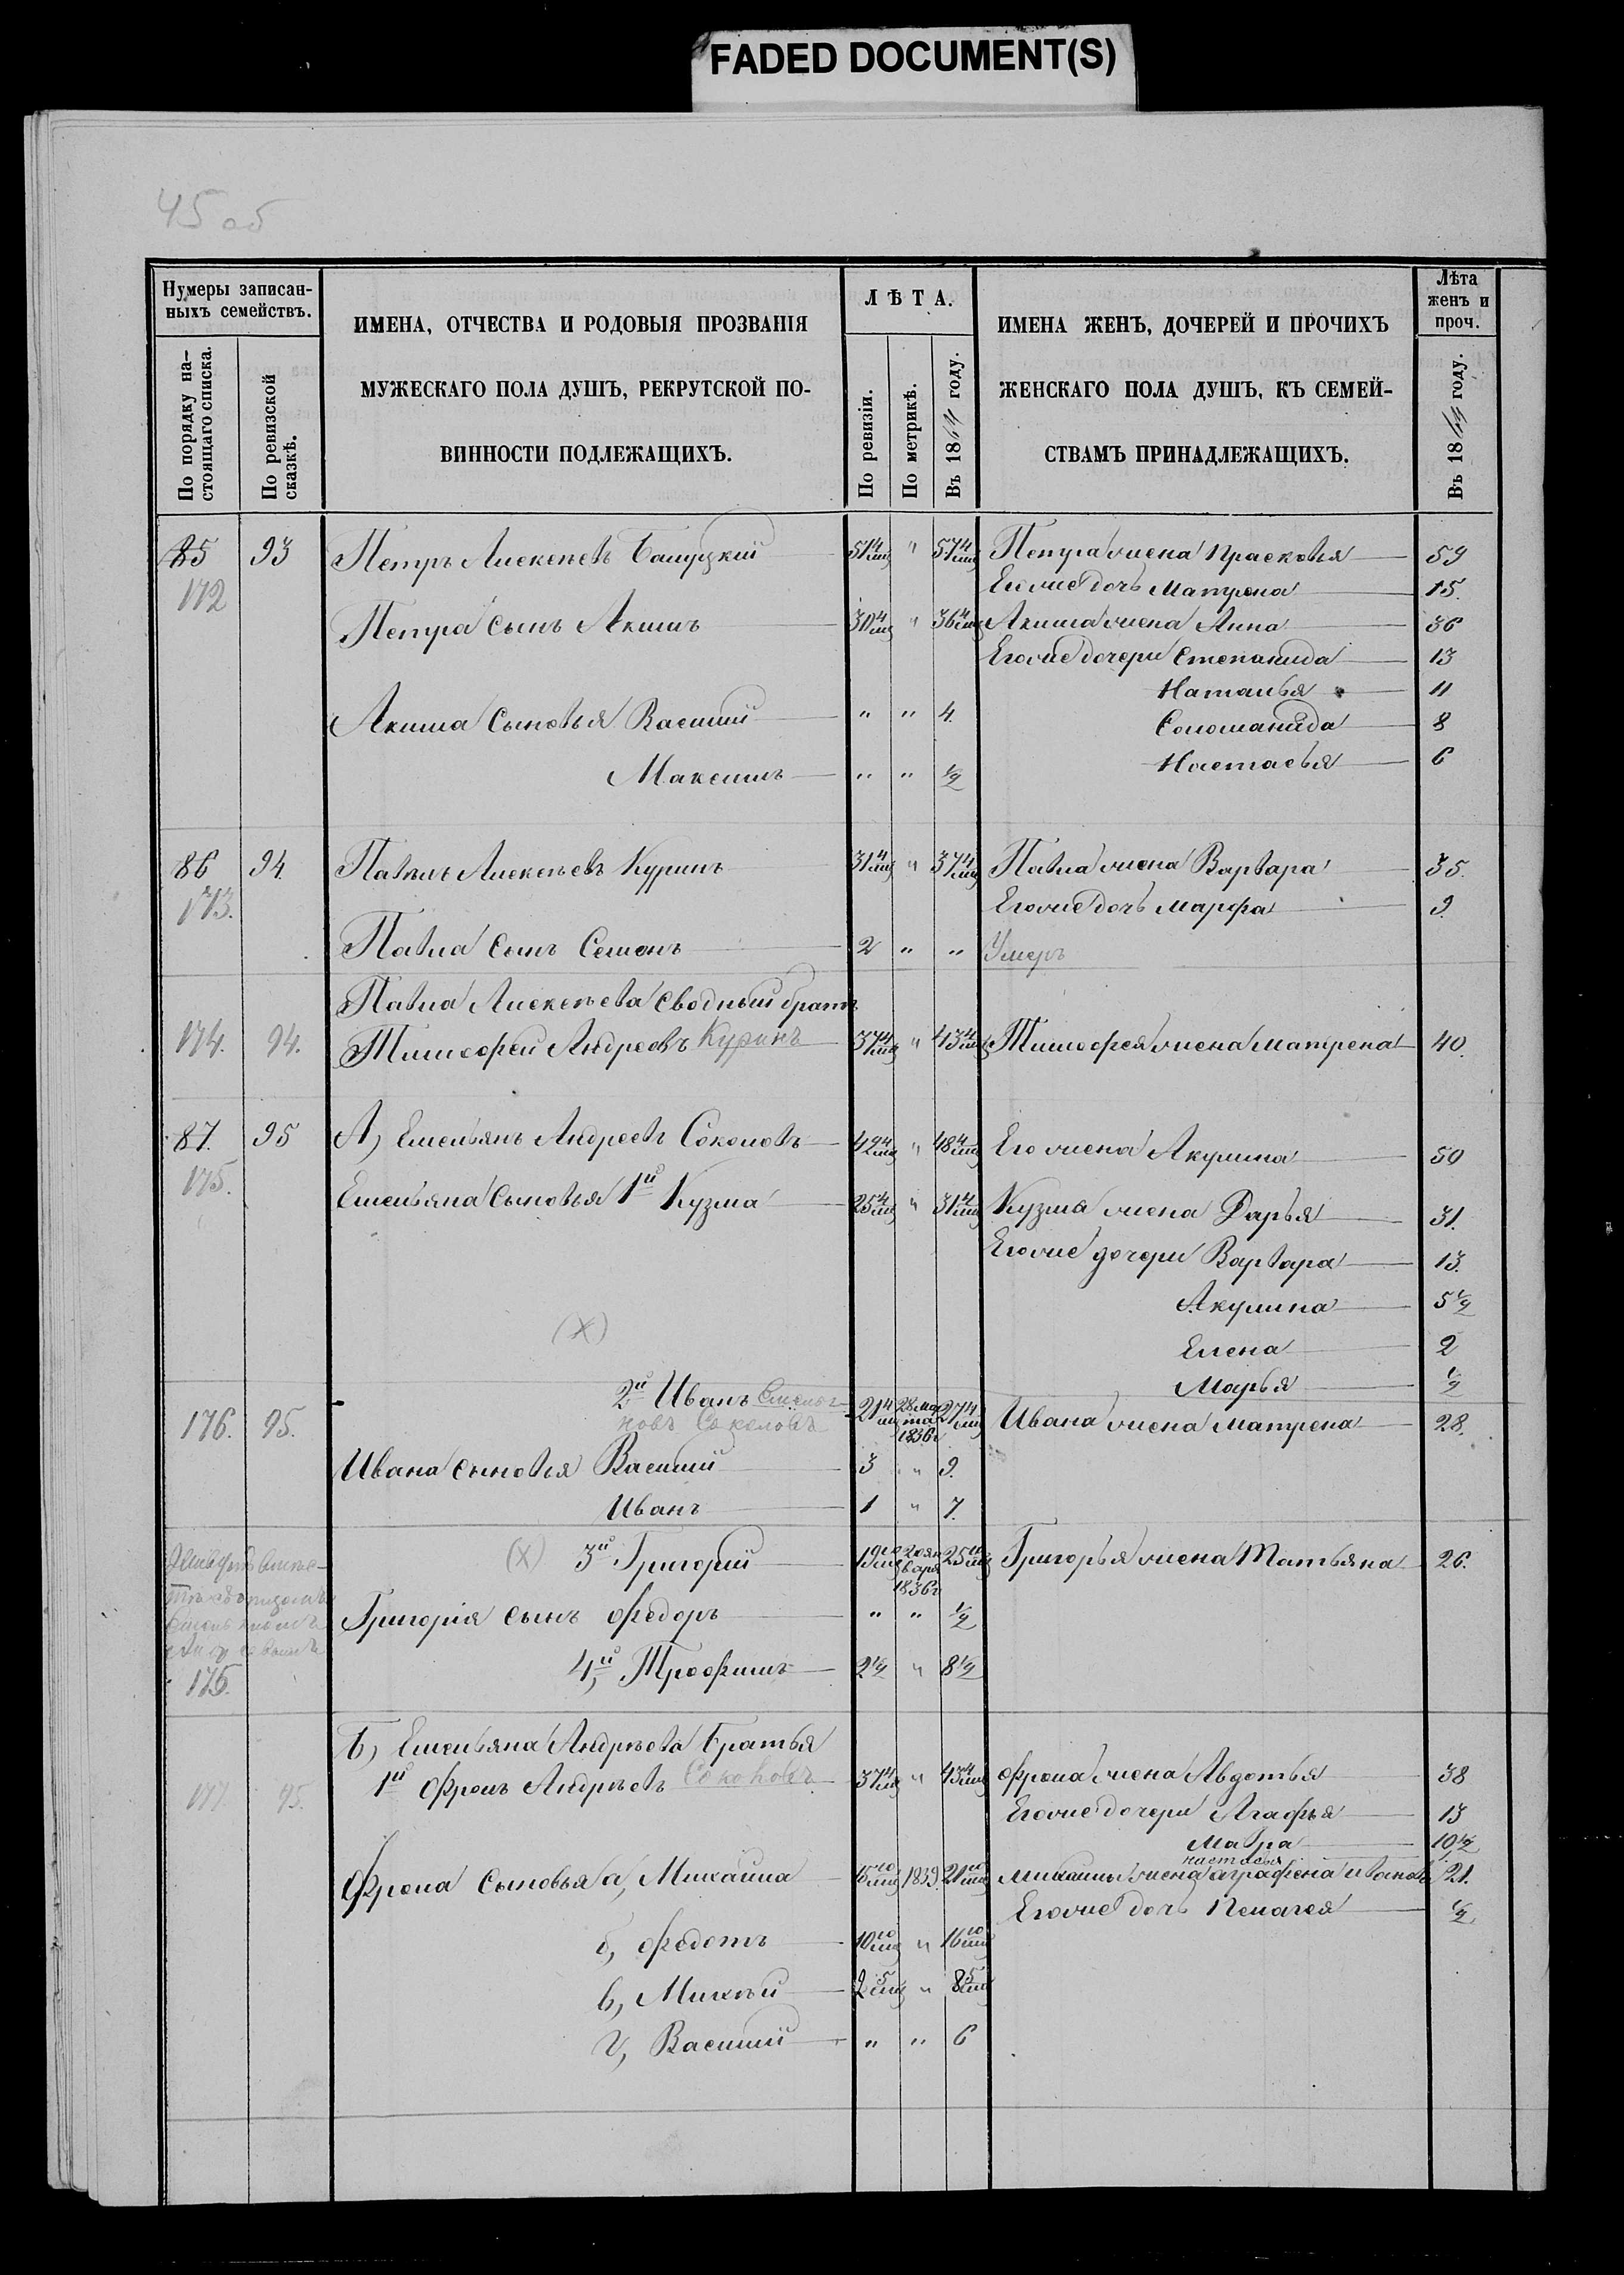 FADED DOCUMENT(S)
45 об
Нумеры записан-
ныхъ семействъ.
По порядку на-
стоящаго списка.
По ревизской
сказкѣ.
ИМЕНА, ОТЧЕСТВА И РОДОВЫЯ ПРОЗВАНІЯ
МУЖЕСКАГО ПОЛА ДУШЪ, РЕКРУТСКОЙ ПО-
ВИННОСТИ ПОДЛЕЖАЩИХЪ.
ЛѢТА.
По ревизіи.
По метрикѣ.
Въ 1864 году.
ИМЕНА ЖЕНЪ, ДОЧЕРЕЙ И ПРОЧИХЪ
ЖЕНСКАГО ПОЛА ДУШЪ, КЪ СЕМЕЙ-
СТВАМЪ ПРИНАДЛЕЖАЩИХЪ.
Лѣта
женъ и
проч.
Въ 1864 году.
85 93 Петръ Алексѣевъ 51 4/мц " 57 4/мц Петра жена Прасковья 59
172 Его же дочь Матрена 15.
Петра сынъ Акимъ 30 4/мц " 36 4/мц Акима жена Анна 36
Его же дочери Степанида 13
Наталья 11
Акима сыновья Василий " " 4. Соломанида 8
Максимъ " " 1/2 Настасья 6
86 94 Павелъ Алексѣевъ Куринъ 31 4/мц " 37 4/мц Павла жена Варвара 35.
173. Его же дочь Марфа 9.
Павла сынъ Семенъ 2 " " Умеръ
Павла Алексѣева сводный братъ
174. 94. Тимофей Андреевъ Куринъ 37 4/мц " 43 4/мц Тимофея жена Матрена 40.
87. 95 А, Емельянъ Андреевъ Соколовъ 42 4/мц " 48 4/мц Его жена Акулина 50
175.
Емельяна сыновья 1й Кузма 25 4/мц " 31 4/мц Кузма жена Дарья 31.
Его же дочери Варвара 13.
Акулина 5 1/2
(X)
Елена 2
Марья 1/2
2й Иванъ Емелья-
176. 95. новъ Соколовъ 21 4/мц 28 мар
та
1836 г 27 4/мц Ивана жена Матрена 28.
Ивана сыновья Василий 3 " 9.
Иванъ 1 " 7.
(X) 3й Григорий 19 10/мц 20 ян
варя
1836 г 25 10/мц Григорья жена Татьяна 26.
Григорія сынъ Федоръ " " 1/2
4й, Трофимъ 2 1/2 " 8 1/2
175.
Б, Емельяна Андрѣева Братья
177. 95. 1й Фролъ Андрѣевъ Соколовъ 37 4/мц " 43 4/мц Фрола жена Авдотья 38
Его же дочери Агафья 13
Мавра 10 1/2
настасья
Фрола сыновья а, Михайла 15 10/мц 1839. 21 10/мц михайлы жена аграфена иванова 21.
Его же дочь Пелагея 1/2
б, Федотъ 10 10/мц " 16 10/мц
в, Михѣй 2 5/мц " 8 5/мц
г, Василий " " 6